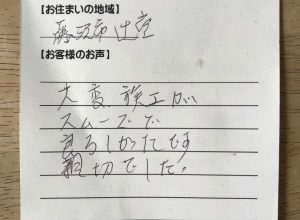 【お住まいの地域】
藤沢市辻堂
【お客様のお声】
大変施工が
スムーズで
よろしかったです
親切でした。